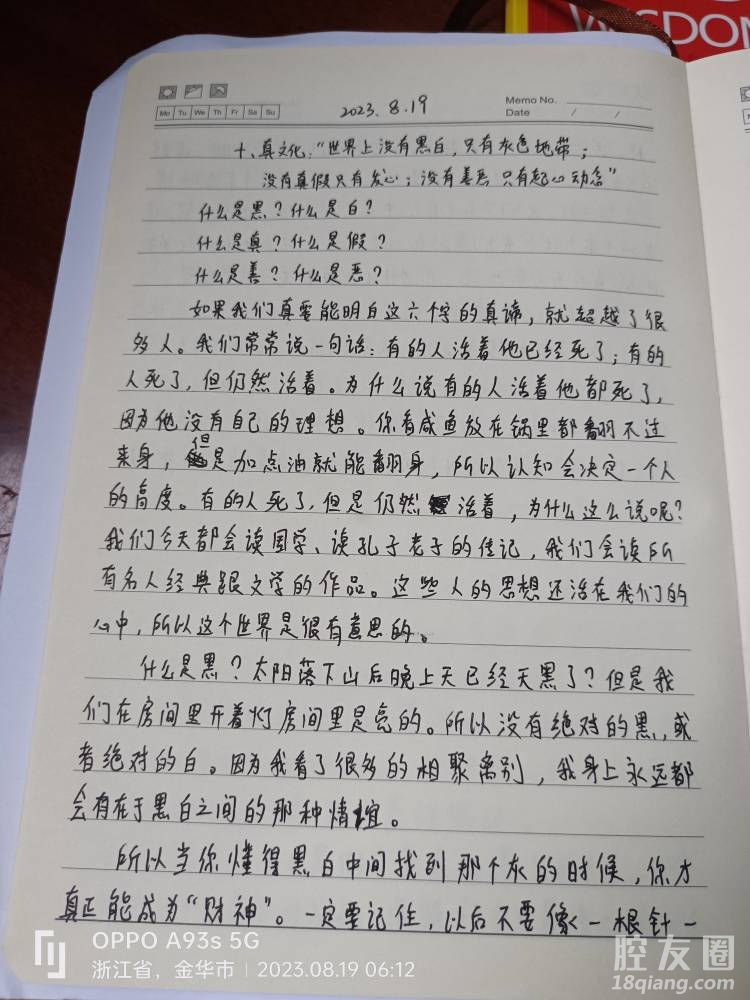 WISDOM
Mo Tu We Th Fr Sa Su
2023.8.19
Memo No.
Date / /
十、真文化:“世界上没有黑白,只有灰色地带;
没有真假只有发心;没有善恶 只有起心动念”
什么是黑?什么是白?
什么是真?什么是假?
什么是善?什么是恶?
如果我们真要能明白这六个字的真谛,就超越了很
多人。我们常常说一句话:有的人活着他已经死了;有的
人死了,但仍然活着。为什么说有的人活着他都死了,
因为他没有自己的理想。你看咸鱼放在锅里都翻不过
来身,但是加点油就能翻身,所以认知会决定一个人
的高度。有的人死了,但是仍然活着,为什么这么说呢?
我们今天都会读国学、读孔子老子的传记,我们会读所
有名人经典跟文学的作品。这些人的思想还活在我们的
心中,所以这个世界是很有意思的。
什么是黑?太阳落下山后晚上天已经天黑了?但是我
们在房间里开着灯房间里是亮的。所以没有绝对的黑,或
者绝对的白。因为我看了很多的相聚离别,我身上永远都
会有在于黑白之间的那种情谊。
所以当你懂得黑白中间找到那个灰的时候,你才
真正能成为“财神”。一定要记住,以后不要像一根针一
OPPO A93s 5G
浙江省,金华市 | 2023.08.19 06:12
腔友圈
18qiang.com